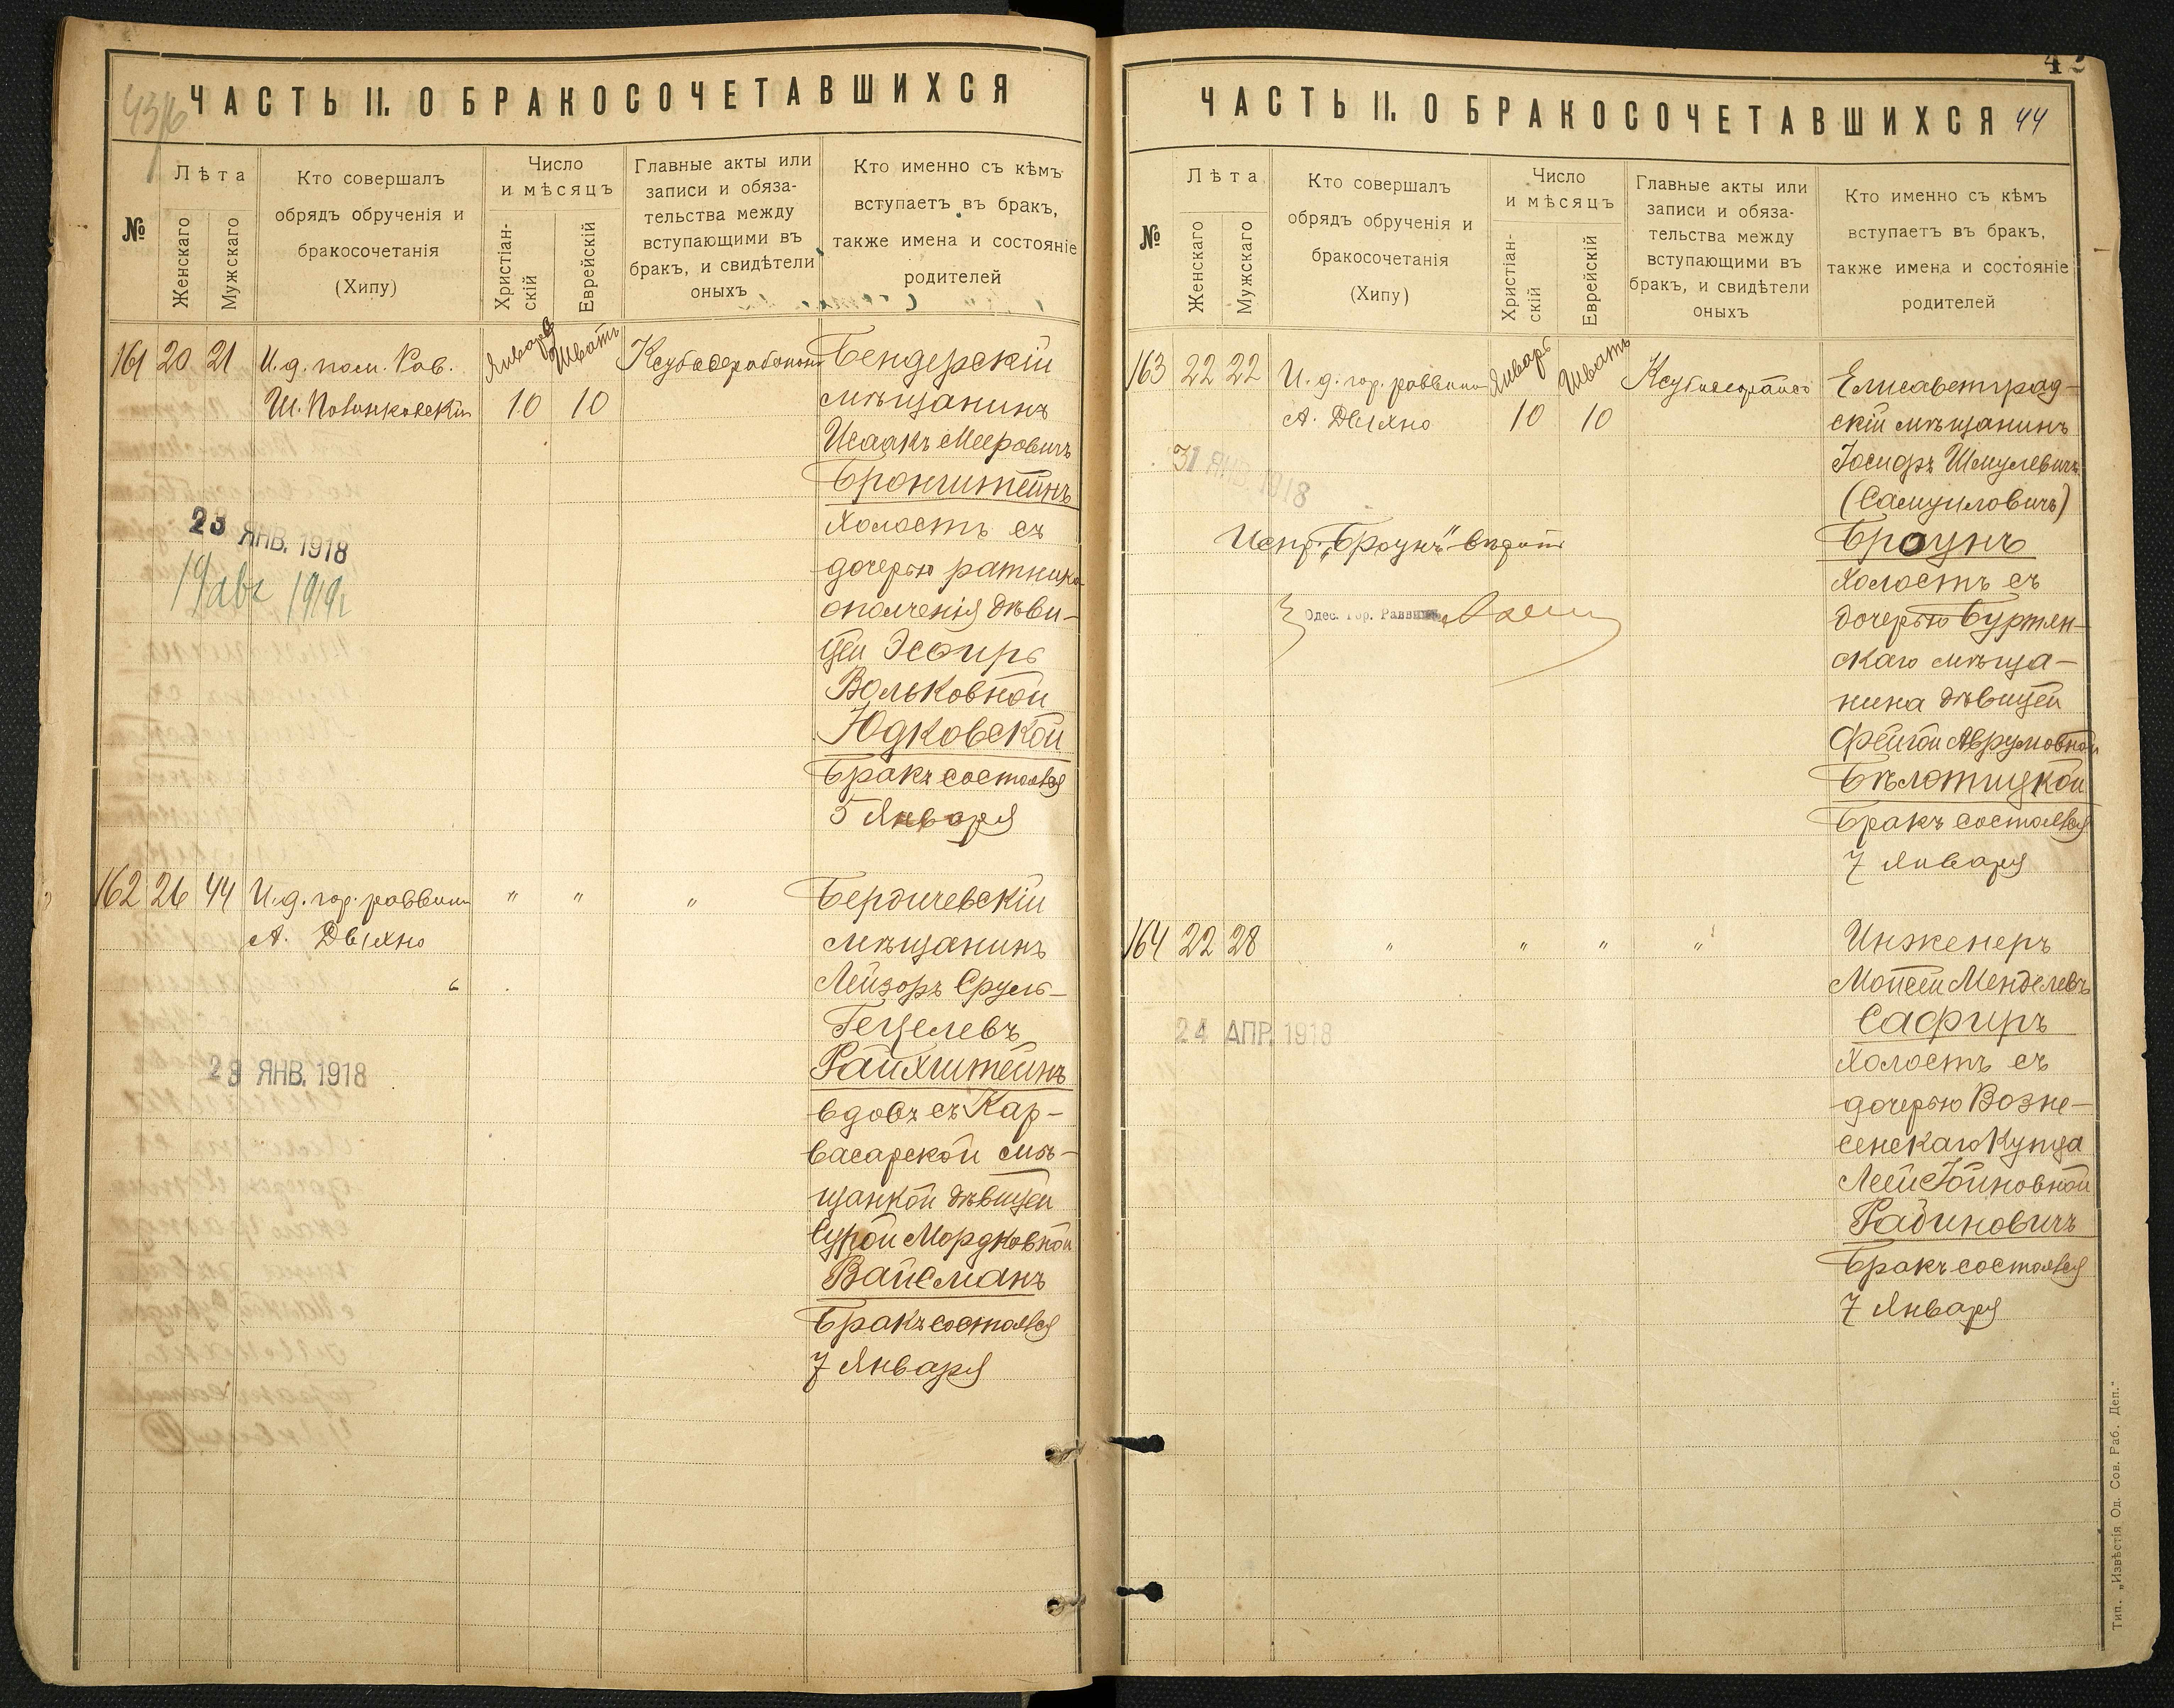 ЧАСТЬ II. О БРАКОСОЧЕТАВШИХСЯ
№
Лѣта
Женскаго
Мужскаго
Кто совершалъ
обрядъ обрученія и
бракосочетанія
(Хипу)
Число
и мѣсяцъ
Христіан-
скій
Еврейскій
Главные акты или
записи и обяза-
тельства между
вступающими въ
бракъ, и свидѣтели
оныхъ
Кто именно съ кѣмъ
вступаетъ въ бракъ,
также имена и состояніе
родителей
161 20 21
И. д. пом. Рав.
Январь Шватъ
10 10
Бендерскій
мѣщанинъ
Исаакъ Мееровичъ
Бронштейнъ
холостъ съ
дочерью ратника
ополченія дѣви-
цей Эсѳирь
Вольковной
Юдковской
Бракъ состоялся
5 Января
23 ЯНВ. 1918
19 авг 1919
162 26 44
И. д. гор. раввина
А. Двыхно
" " "
Бердичевскій
мѣщанинъ
Лейзоръ Сруль-
Гецелевъ
Райхштейнъ
вдовъ съ Кар-
васарской мѣ-
щанкой дѣвицей
Сурой Мордковной
Вайсманъ
Бракъ состоялся
7 Января
ЯНВ. 1918
42
ЧАСТЬ II. О БРАКОСОЧЕТАВШИХСЯ 44
№
Лѣта
Женскаго
Мужскаго
Кто совершалъ
обрядъ обрученія и
бракосочетанія
(Хипу)
Число
и мѣсяцъ
Христіан-
скій
Еврейскій
Главные акты или
записи и обяза-
тельства между
вступающими въ
бракъ, и свидѣтели
оныхъ
Кто именно съ кѣмъ
вступаетъ въ бракъ,
также имена и состояніе
родителей
163 22 22
И. д. гор. раввина
А. Двыхно
Январь Шватъ
10 10
Елисаветград-
скій мѣщанинъ
Іосифъ Шмулевичъ
(Самуиловичъ)
Броунъ
холостъ съ
дочерью
скаго мѣща-
нина дѣвицей
Фейгой Аврумовной
Бѣлотицкой
Бракъ состоялся
7 Января
31 ЯНВ. 1918
Испр. „Броунъ" вѣрить
Одес. Гор. Раввинъ
164 22 28
" " " "
Инженеръ
Мойсей Менделевъ
Сафиръ
холостъ съ
дочерью Возне-
сенскаго Купца
Леей Іойновной
Рабиновичъ
Бракъ состоялся
7 Января
24 АПР. 1918
Тип. „Извѣстія Од. Сов. Раб. Деп."